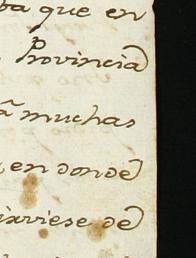 ba que en
Provincia
ã muchas
en donde
ixviese de